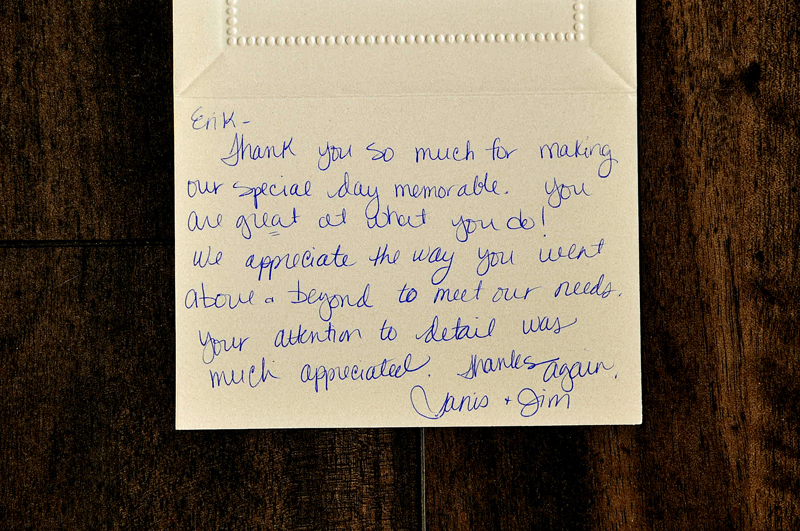 Erik-
Thank you so much for making
our special day memorable. You
are great at what you do!
We appreciate the way you went
above & beyond to meet our needs.
Your attention to detail was
much appreciated. Thanks again.
Janis + Jim